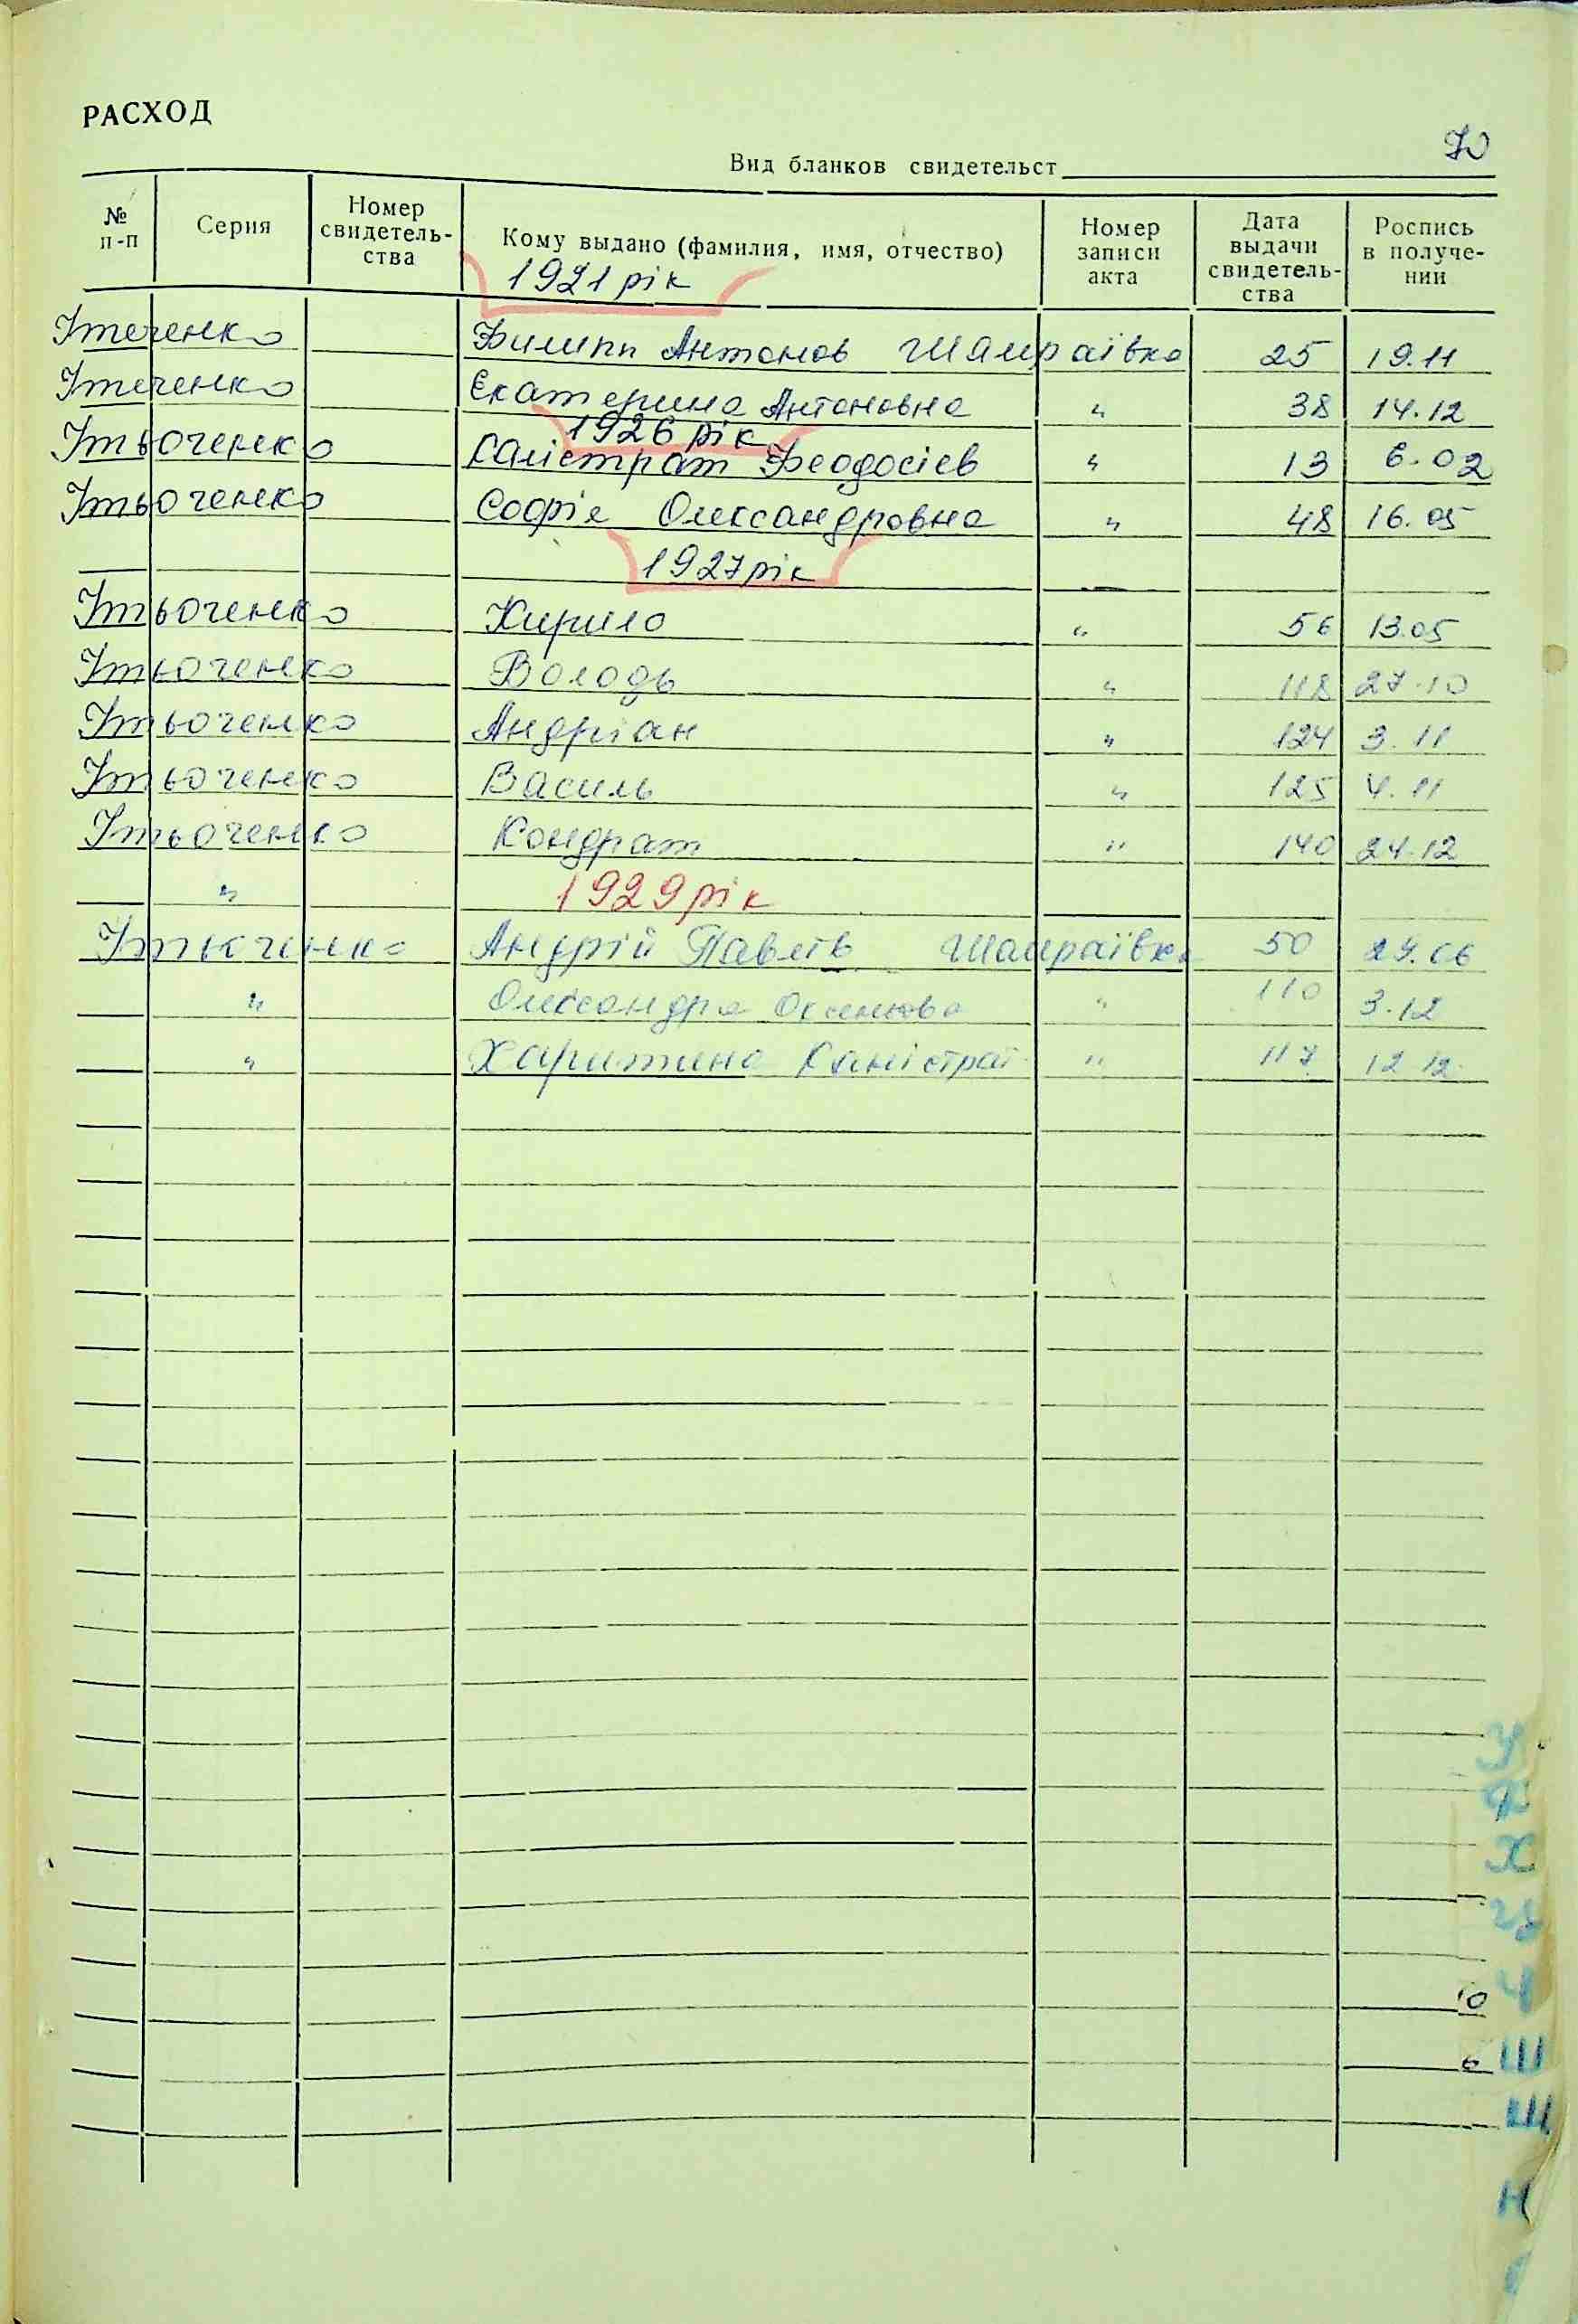 РАСХОД
70
Вид бланков свидетельст
№ п-п Серия Номер свидетель-ства Кому выдано (фамилия, имя, отчество) Номер записи акта Дата выдачи свидетель-ства Роспись в получе-нии
1921 рік
Ітеченко Филипп Антонов Шамраївка 25 19.11
Ітеченко Екатерина Антоновна " 38 14.12
1926 рік
Ітьоченко Калістрат Феодосієв " 13 6.02
Ітьоченко Софія Олександровна " 48 16.05
1927 рік
Ітьоченко Кирило " 56 13.05
Ітьоченко Володь " 118 27.10
Ітьоченко Андріан " 124 3.11
Ітьоченко Василь " 125 4.11
Ітьоченко Кондрат " 140 24.12
" 1929 рік
Андрій Павлів Шамраївка 50 24.06
" Олександра " 110 3.12
" Харитина Каністрат " 117 12.12
У
Ф
Х
Ц
10 Ч
6 Ш
Щ